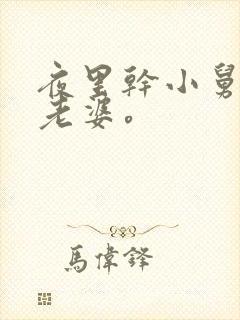 夜里幹小舅
老婆。
馬偉鋒